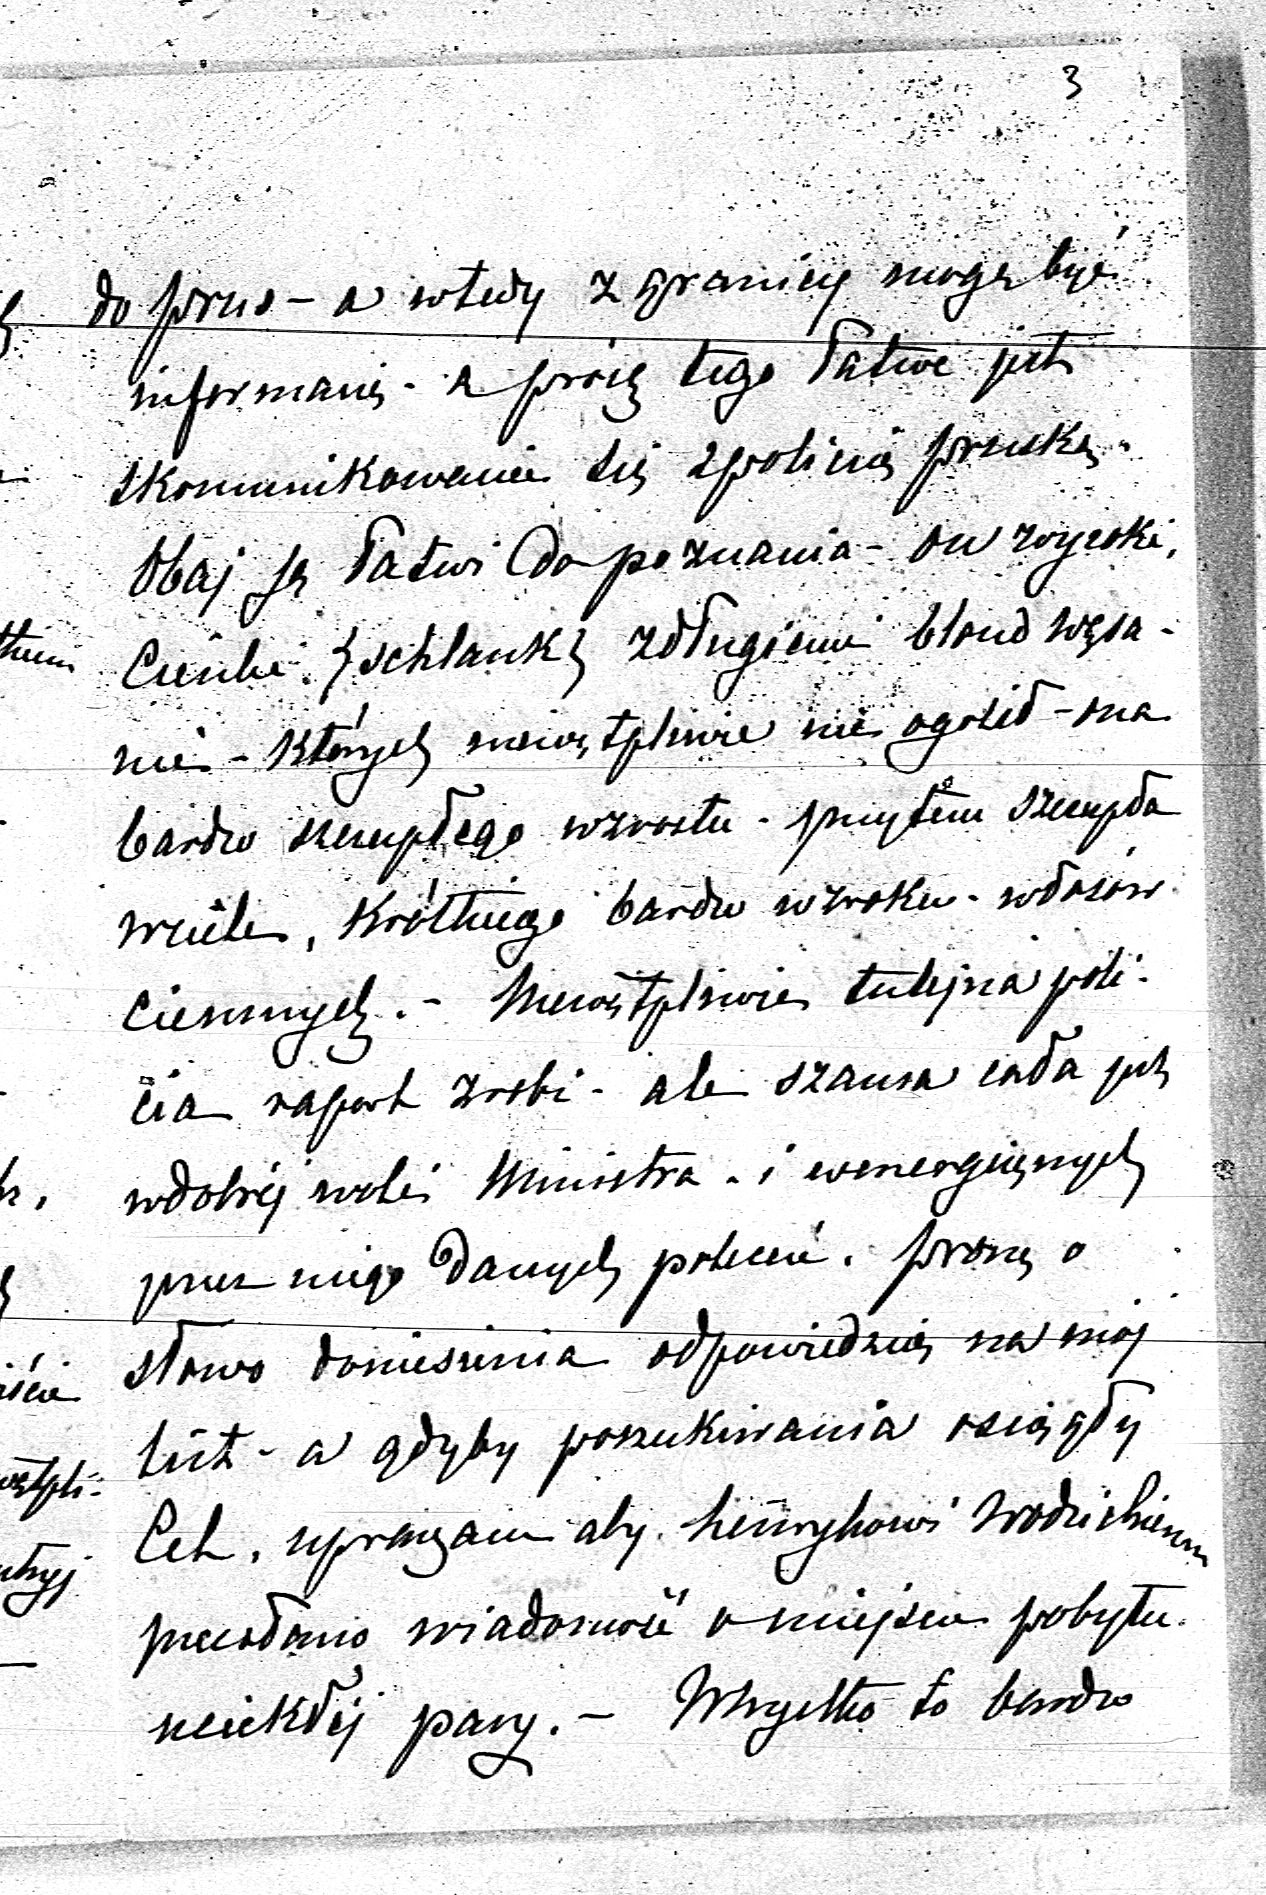 3
do Prus – a wtedy z granicy mogą być
informacię – a prócz tego łatwe jest
skomunikowanie się z policią pruską.
Obaj są łatwi do poznania – on wysoki,
cienki (schlank) z długiemi blond wąsa-
mi – których niewątpliwie nie ogolił – ona
bardzo szczupłego wzrostu – przytém szczupła
w ciele, krótkiego bardzo wzroku – włosów
ciemnych. – Niewątpliwie tutejsza poli-
cia raport zrobi – ale szansa cała jest
w dobréj woli Ministra – i w energicznych
przez niego danych poleceń. Proszę o
słowo doniesienia odpowiedzią na mój
list – a gdyby poszukiwania osiągły
cel, upraszam aby Henrykowi Wodzickiemu
przesłano wiadomość o miejscu pobytu
uciekłéj pary. – Wszystko to bardzo